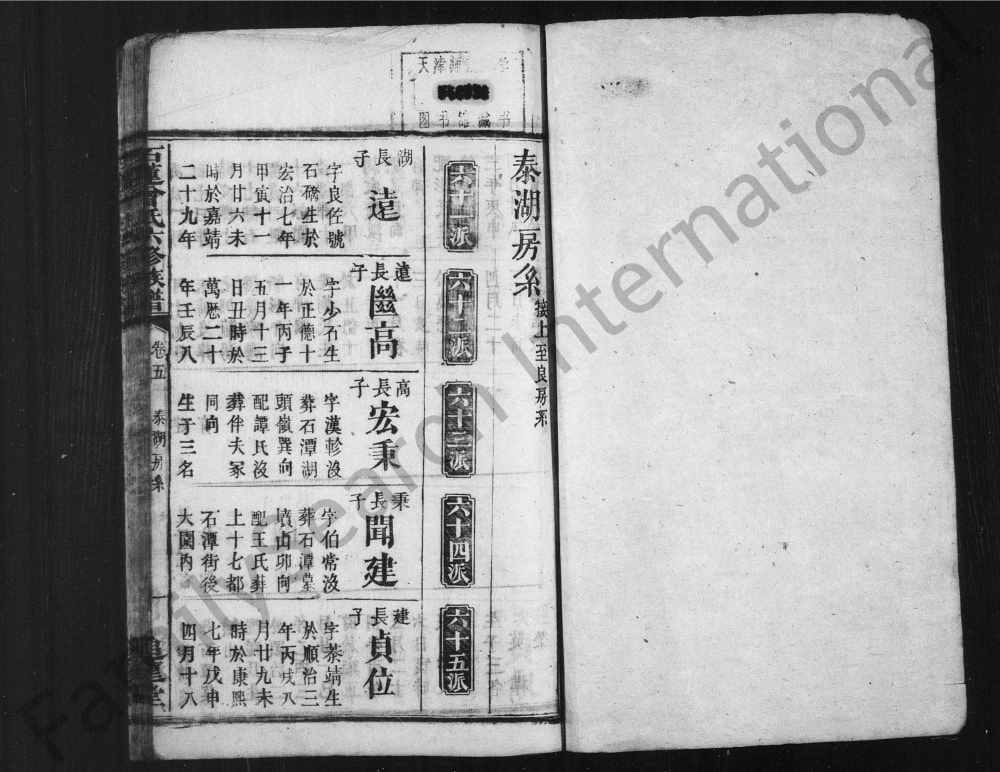 天津師
图书馆藏书
泰湖房系
接上至良房系
六十一派
六十二派
六十三派
六十四派
六十五派
湖長子
遠
字良佐號
石磷生於
宏治七年
甲寅十一
月廿六未
時於嘉靖
二十九年
遠長子
繼高
字少石生
於正德十
一年丙子
五月十三
日丑時於
萬厯二十
年壬辰八
高長子
宏秉
字漢軫沒
葬石潭湖
頭嶺巽向
配譚氏沒
葬伴夫冢
同向
生子三名
秉長子
聞建
字伯常沒
葬石潭墓
墳山卯向
配王氏葬
上十七都
石潭街後
大園內
建長子
貞位
字恭靖生
於順治三
年丙戌八
月廿九未
時於康熙
七年戊申
四月十八
石蓮曾氏六修族譜
卷五
泰湖房系
一
追遠堂
FamilySearch International